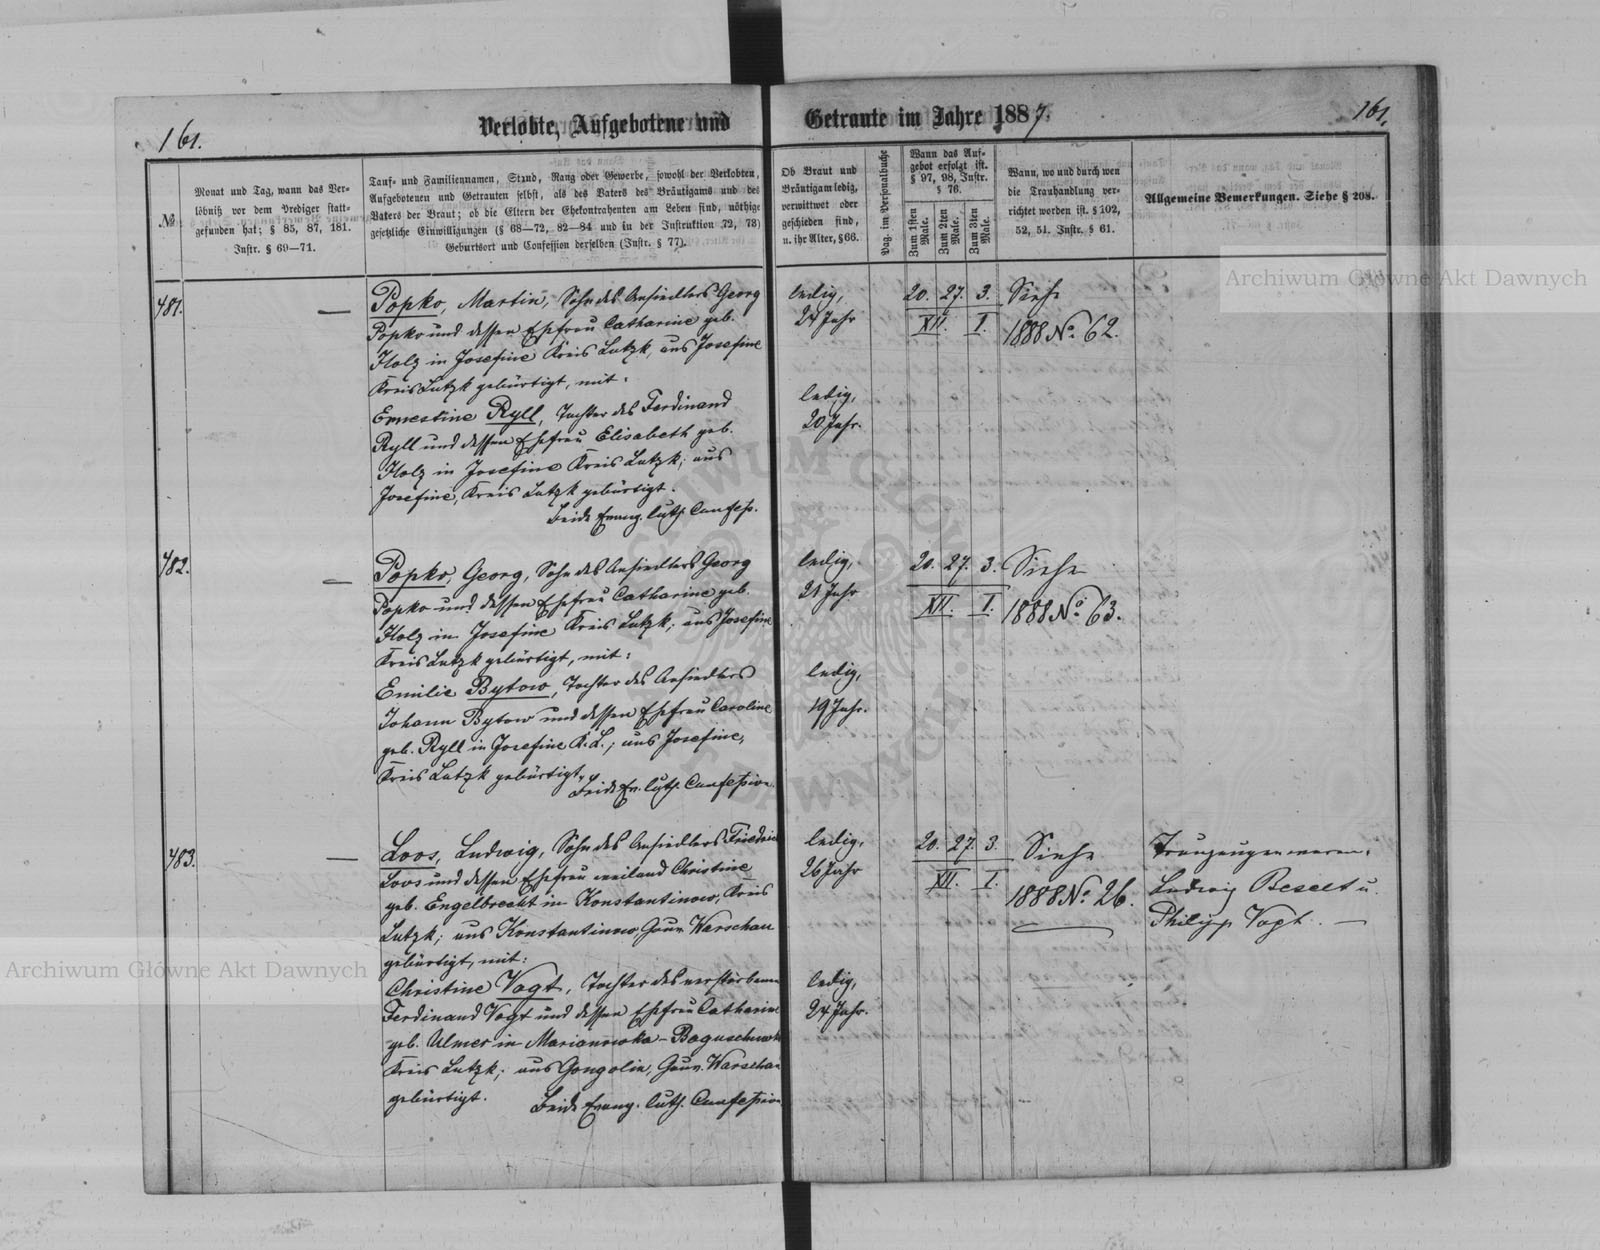 161.
Verlobte, Aufgebotene und
Getraute im Jahre 1887.
161.
№
Monat und Tag, wann das Ver-
löbniß vor dem Prediger statt-
gefunden hat; § 85, 87, 181.
Instr. § 69—71.
Tauf- und Familiennamen, Stand, Rang oder Gewerbe, sowohl der Verlobten,
Aufgebotenen und Getrauten selbst, als des Vaters des Bräutigams und des
Vaters der Braut; ob die Eltern der Ehekontrahenten am Leben sind, nöthige
gesetzliche Einwilligungen (§ 68—72, 82—84 und in der Instruktion 72, 73)
Geburtsort und Confession derselben (Instr. § 77).
Ob Braut und
Bräutigam ledig,
verwittwet oder
geschieden sind,
u. ihr Alter, § 66.
Pag. im Personalbuche
Wann das Auf-
gebot erfolgt ist.
§ 97, 98, Instr.
§ 76.
Zum 1sten Male.
Zum 2ten Male.
Zum 3ten Male.
Wann, wo und durch wen
die Trauhandlung ver-
richtet worden ist. § 102,
52, 51. Instr. § 61.
Allgemeine Bemerkungen. Siehe § 208.
481.
—
Popko, Martin, Sohn des Ansiedlers Georg
Popko und dessen Ehefrau Catharine geb.
Holz in Josefine Kreis Lutzk, aus Josefine
Kreis Lutzk gebürtigt, mit:
Ernestine Ryll, Tochter des Ferdinand
Ryll und dessen Ehefrau Elisabeth geb.
Holz in Josefine Kreis Lutzk; aus
Josefine, Kreis Lutzk gebürtigt.
Beide Evang. Luth. Confess.
ledig,
24 Jahr
ledig,
20 Jahr.
20. 27. 3.
XII. I.
Siehe
1888 No. 62.
482.
—
Popko, Georg, Sohn des Ansiedlers Georg
Popko und dessen Ehefrau Catharine geb.
Holz in Josefine Kreis Lutzk; aus Josefine
Kreis Lutzk gebürtigt, mit:
Emilie Bytow, Tochter des Ansiedlers
Johann Bytow und dessen Ehefrau Caroline
geb. Ryll in Josefine K. L.; aus Josefine,
Kreis Lutzk gebürtigt.
Beide Ev. Luth. Confession.
ledig,
21 Jahr
ledig,
19 Jahr.
20. 27. 3.
XII. I.
Siehe
1888 No. 63.
483.
—
Loos, Ludwig, Sohn des Ansiedlers Friedrich
Loos und dessen Ehefrau weiland Christine
geb. Engelbrecht in Konstantinow, Kreis
Lutzk; aus Konstantinow, Gouv. Warschau
gebürtigt, mit:
Christine Vogt, Tochter des verstorbenen
Ferdinand Vogt und dessen Ehefrau Catharine
geb. Ulmer in Marianowka-Boguschowka
Kreis Lutzk; aus Gongolin, Gouv. Warschau
gebürtigt.
Beide Evang. Luth. Confession
ledig,
26 Jahr
ledig,
24 Jahr.
20. 27. 3.
XII. I.
Siehe
1888 No. 26.
Trauzeugen waren:
Ludwig Beselt u.
Philipp Vogt. —
Archiwum Główne Akt Dawnych
Archiwum Główne Akt Dawnych